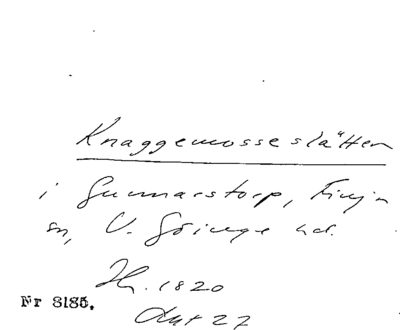 Knaggemosseslätten
i Gunnarstorp, Finja
sn, V. Göinge hd.
Hr. 1820
Nr 8185.
Akt 27